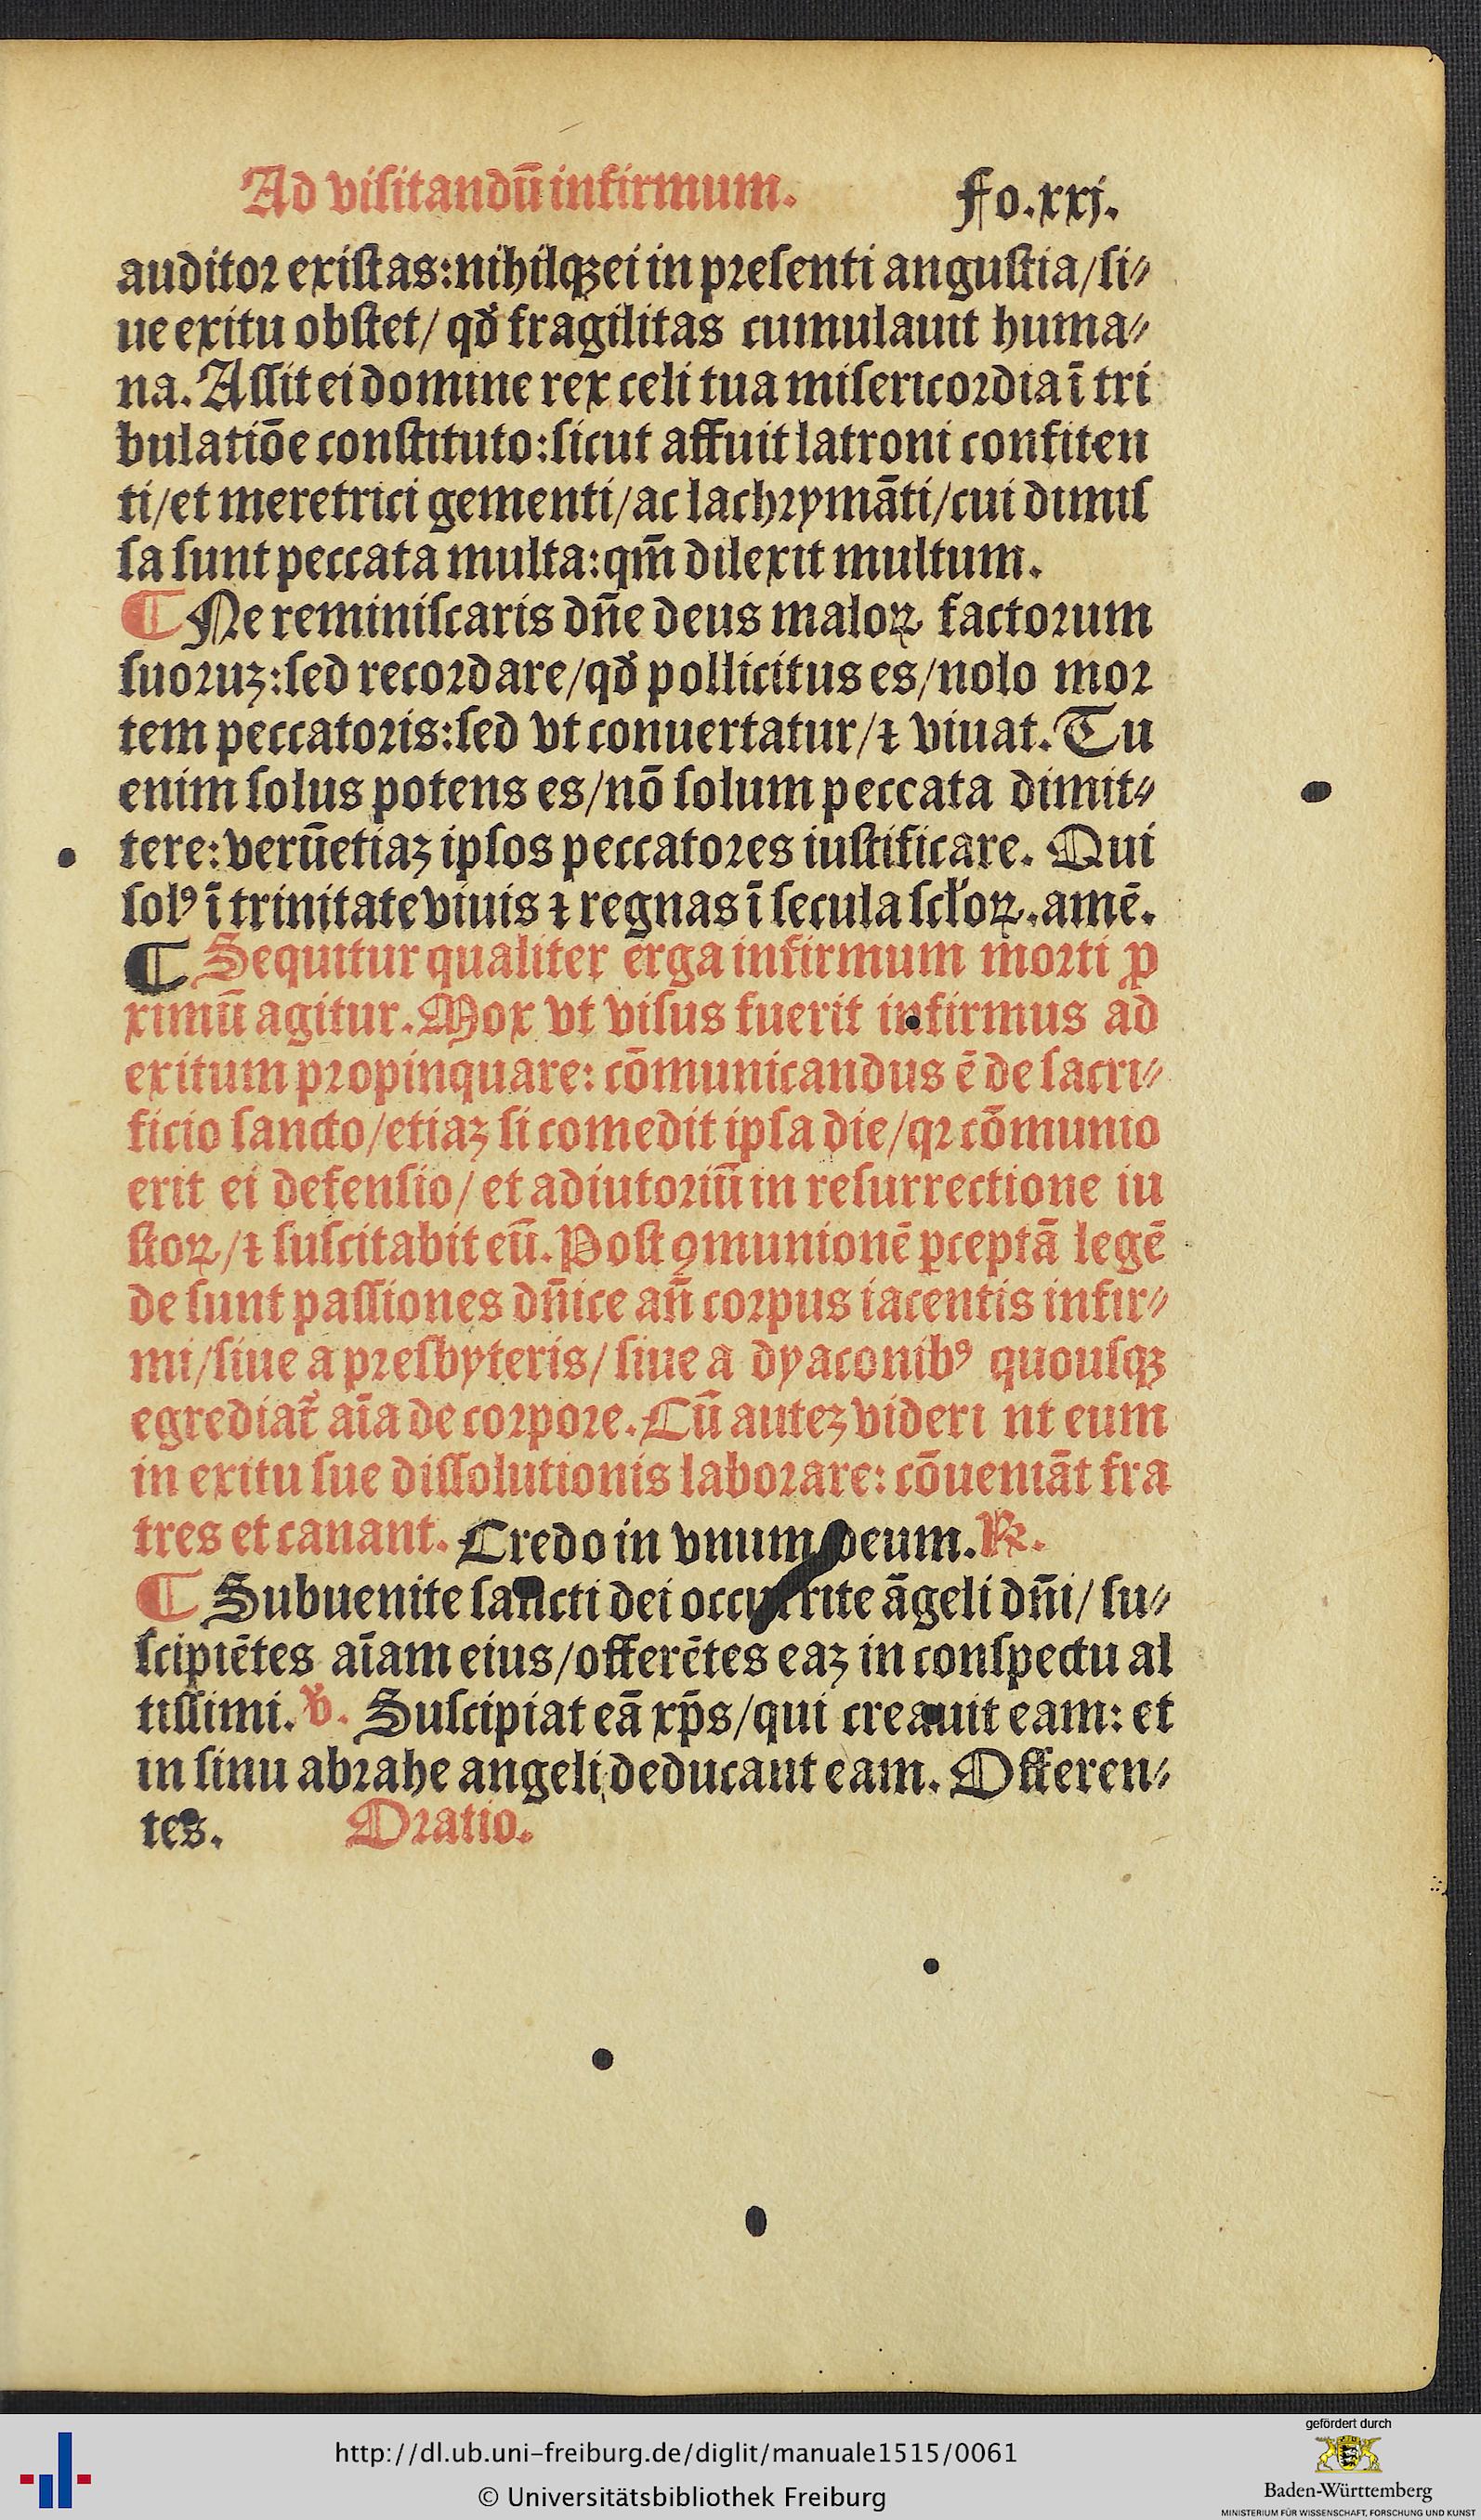 Ad visitandū infirmum. Fo.xxj.
auditor existas:nihilqꝫ ei in presenti angustia/si⸗
ue exitu obstet/ qđ fragilitas cumulauit huma⸗
na. Assit ei domine rex celi tua misericordia ī tri
bulatiōe constituto:sicut affuit latroni confiten
ti/et meretrici gementi/ac lachrymāti/cui dimis
sa sunt peccata multa:qm̄ dilexit multum.
¶ Ne reminiscaris dn̄e deus maloꝝ factorum
suoruꝫ:sed recordare/qđ pollicitus es/nolo mor
tem peccatoris:sed vt conuertatur/⁊ viuat. Tu
enim solus potens es/nō solum peccata dimit⸗
tere:verūetiaꝫ ipsos peccatores iustificare. Qui
solꝰ ī trinitate viuis ⁊ regnas ī secula scľoꝝ.amē.
¶ Sequitur qualiter erga infirmum morti ꝓ
ximū agitur. Mox vt visus fuerit infirmus ad
exitum propinquare: cōmunicandus ē de sacri⸗
ficio sancto/etiaꝫ si comedit ipsa die/qꝛ cōmunio
erit ei defensio/ et adiutoriū in resurrectione iu
stoꝝ/⁊ suscitabit eū. Post ꝯmunionē ꝑceptā legē
de sunt passiones dn̄ice an̄ corpus iacentis infir⸗
mi/siue a presbyteris/ siue a dyaconibꝰ quousqꝫ
egrediat᷑ aīa de corpore. Cū auteꝫ videri nt eum
in exitu sue dissolutionis laborare: cōueniāt fra
tres et canant. Credo in vnum deum. ℟.
¶ Subuenite sancti dei occurrite āgeli dn̄i/ su⸗
scipiētes aīam eius/offerētes eaꝫ in conspectu al
tissimi. ℣. Suscipiat eā xp̄s/qui creauit eam: et
in sinu abrahe angeli deducant eam. Offeren⸗
tes. Oratio.
http://dl.ub.uni-freiburg.de/diglit/manuale1515/0061
© Universitätsbibliothek Freiburg
gefördert durch
Baden-Württemberg
MINISTERIUM FÜR WISSENSCHAFT, FORSCHUNG UND KUNST